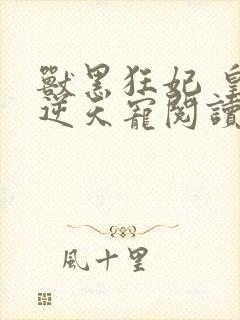 獸黑狂妃 皇
逆天寵閱讀
風十里